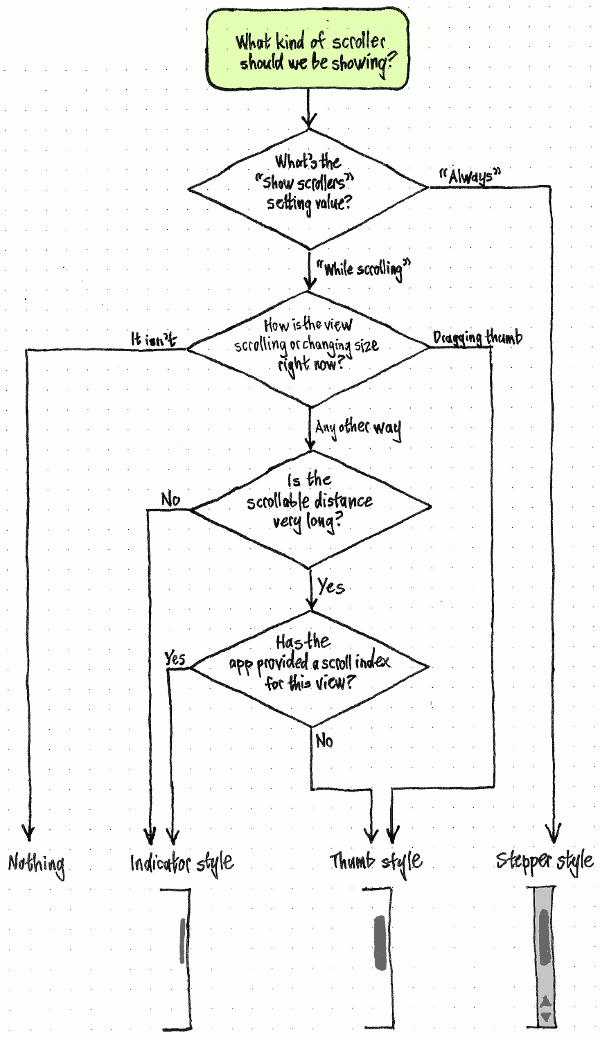 What kind of scroller
should we be showing?
What's the
"Show scrollers"
setting value?
"Always"
"While scrolling"
It isn't
How is the view
scrolling or changing size
right now?
Dragging thumb
Any other way
Is the
scrollable distance
very long?
No
Yes
Has the
app provided a scroll index
for this view?
Yes
No
Nothing
Indicator style
Thumb style
Stepper style